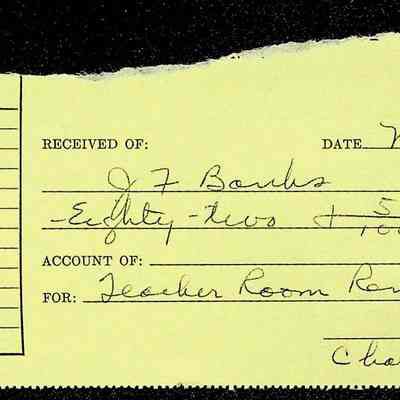 RECEIVED OF: DATE
J F Banks
Eighty-two + 5
100
ACCOUNT OF:
FOR: Teacher Room